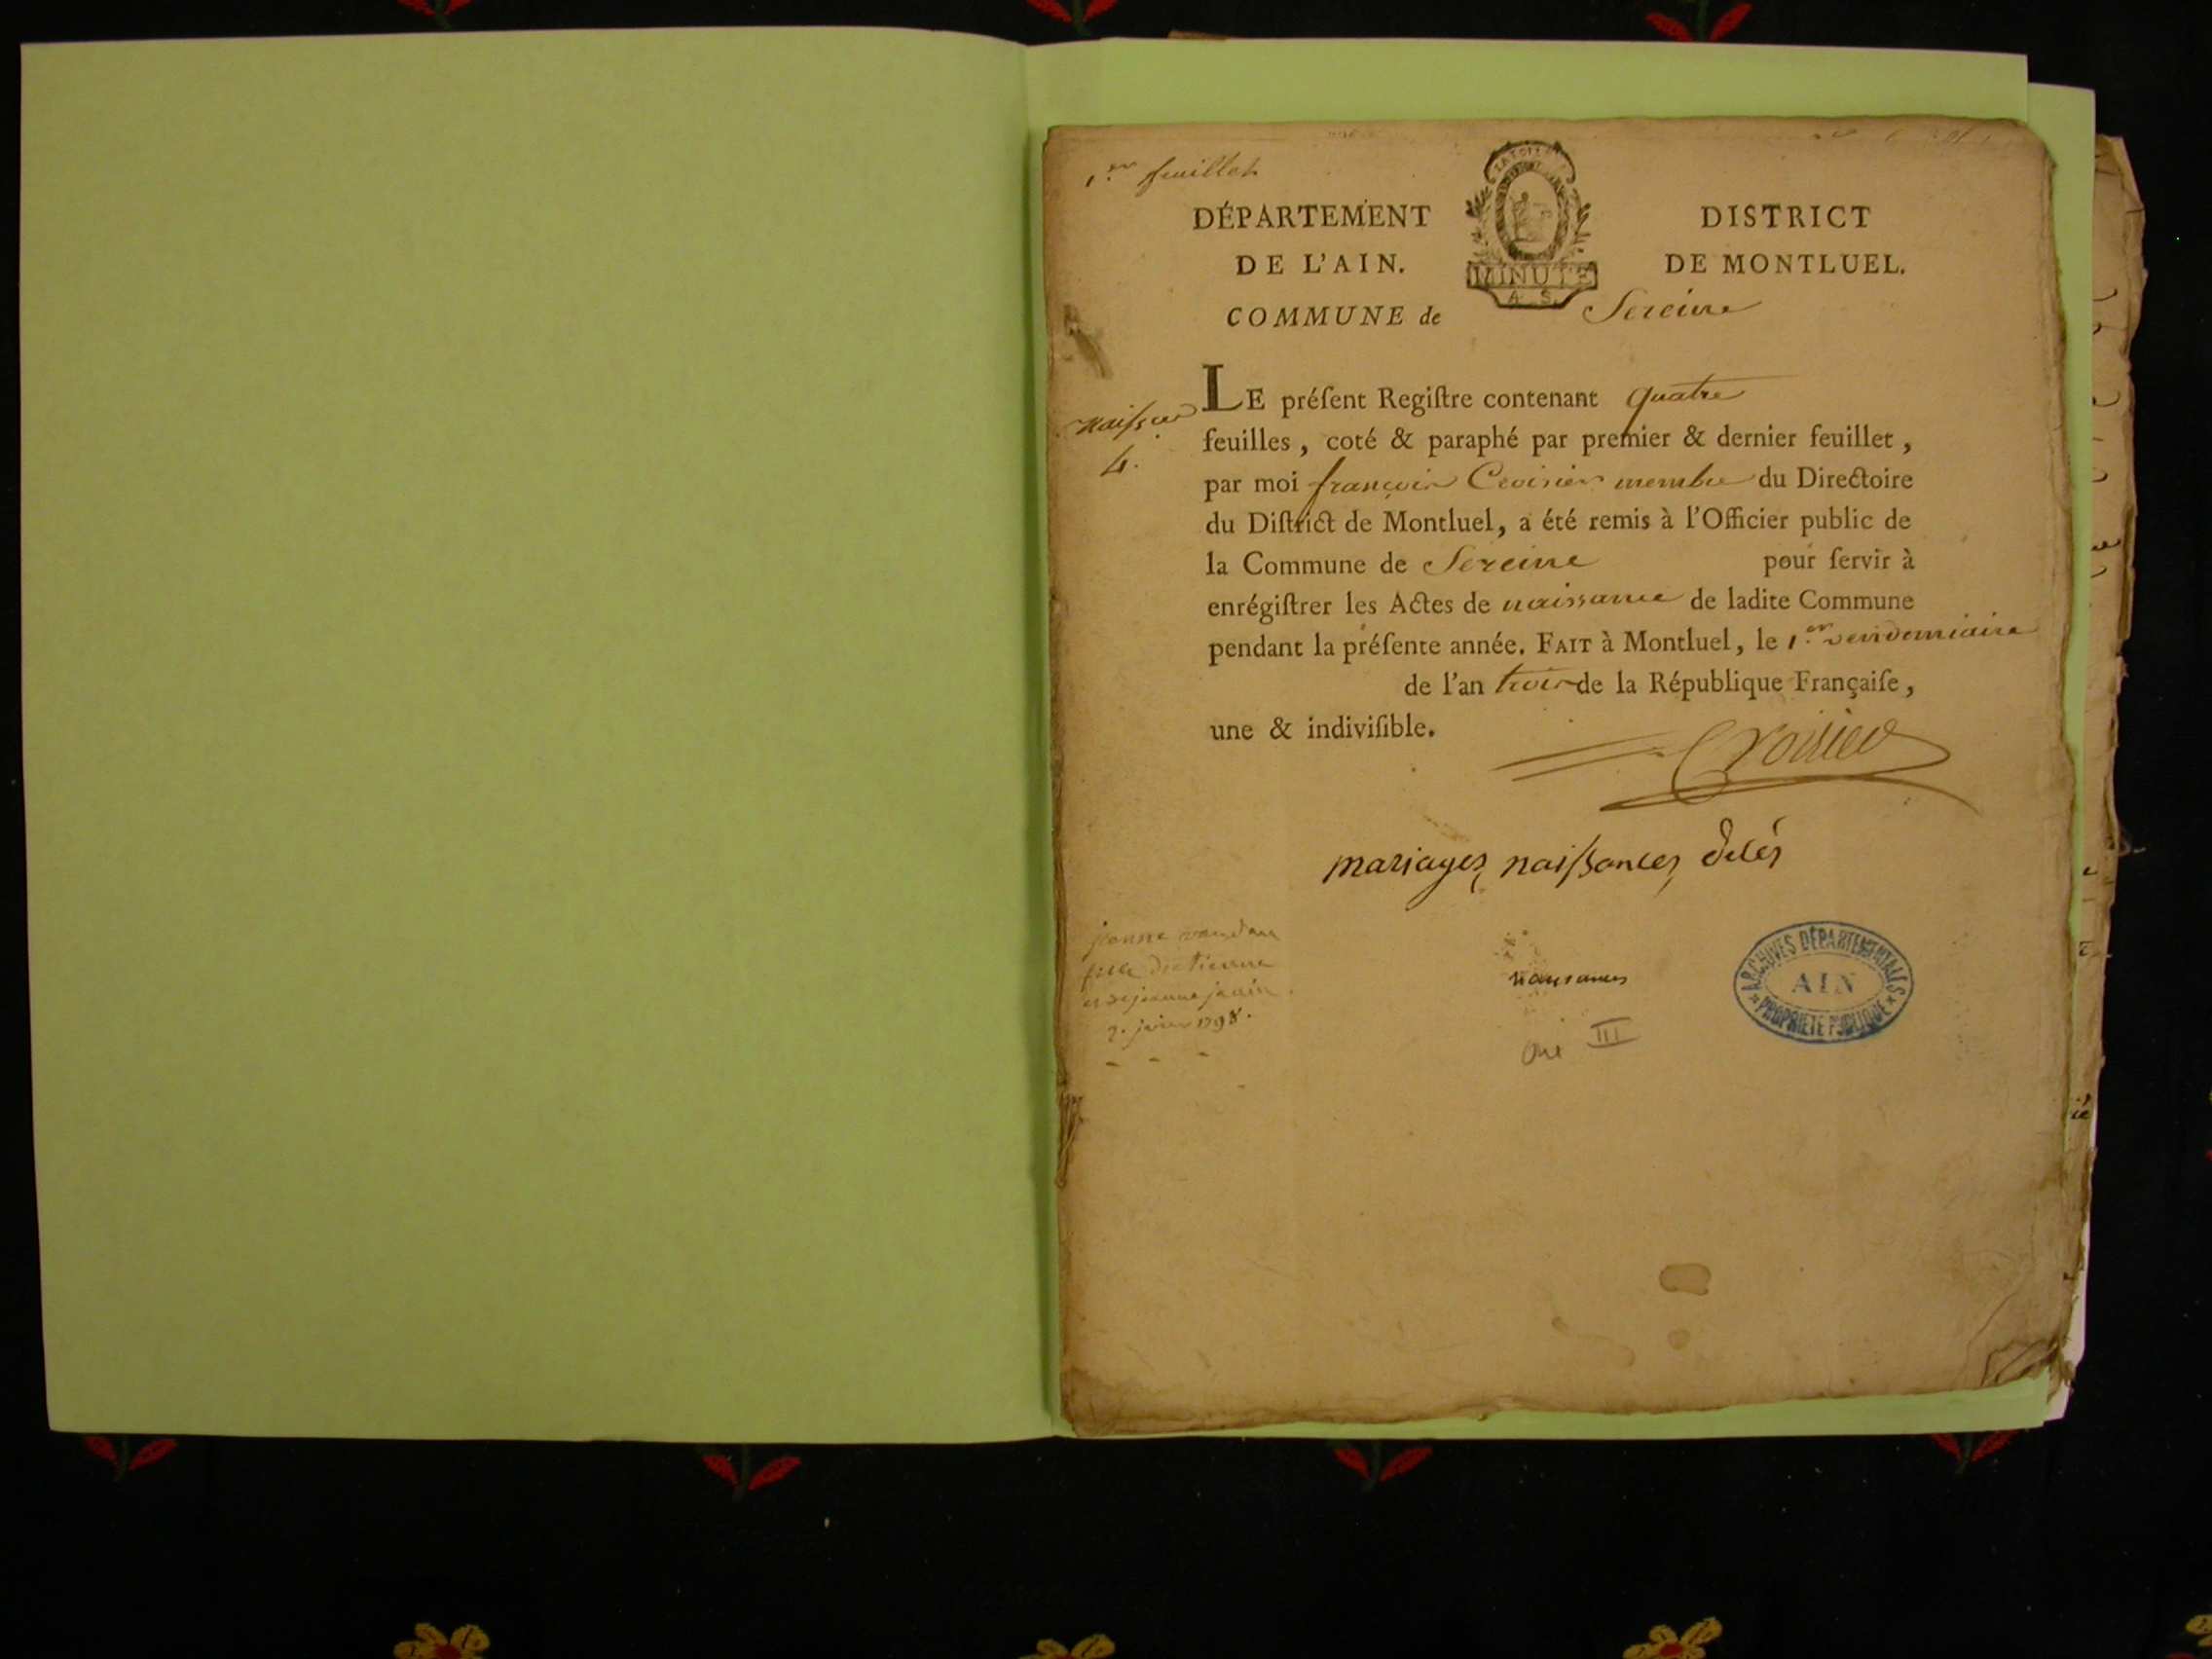 1.er feuillet
DÉPARTEMENT
DE L'AIN.
MINUTE
A. S.
DISTRICT
DE MONTLUEL.
COMMUNE de Sereine
4.
LE préſent Regiſtre contenant quatre
feuilles, coté & paraphé par premier & dernier feuillet,
par moi françois Croisier membre du Directoire
du Diſtrict de Montluel, a été remis à l'Officier public de
la Commune de Sereine pour ſervir à
enrégiſtrer les Actes de naissance de ladite Commune
pendant la préſente année. FAIT à Montluel, le 1.er vendemiaire
de l'an trois de la République Françaiſe,
une & indiviſible.
Croisier
mariages, naissances, décés
jeanne
fille d'etienne
et de jeanne janin
2. janvier 1798.
naissances
an III
ARCHIVES DÉPARTEMENTALES
AIN
PROPRIÉTÉ PUBLIQUE